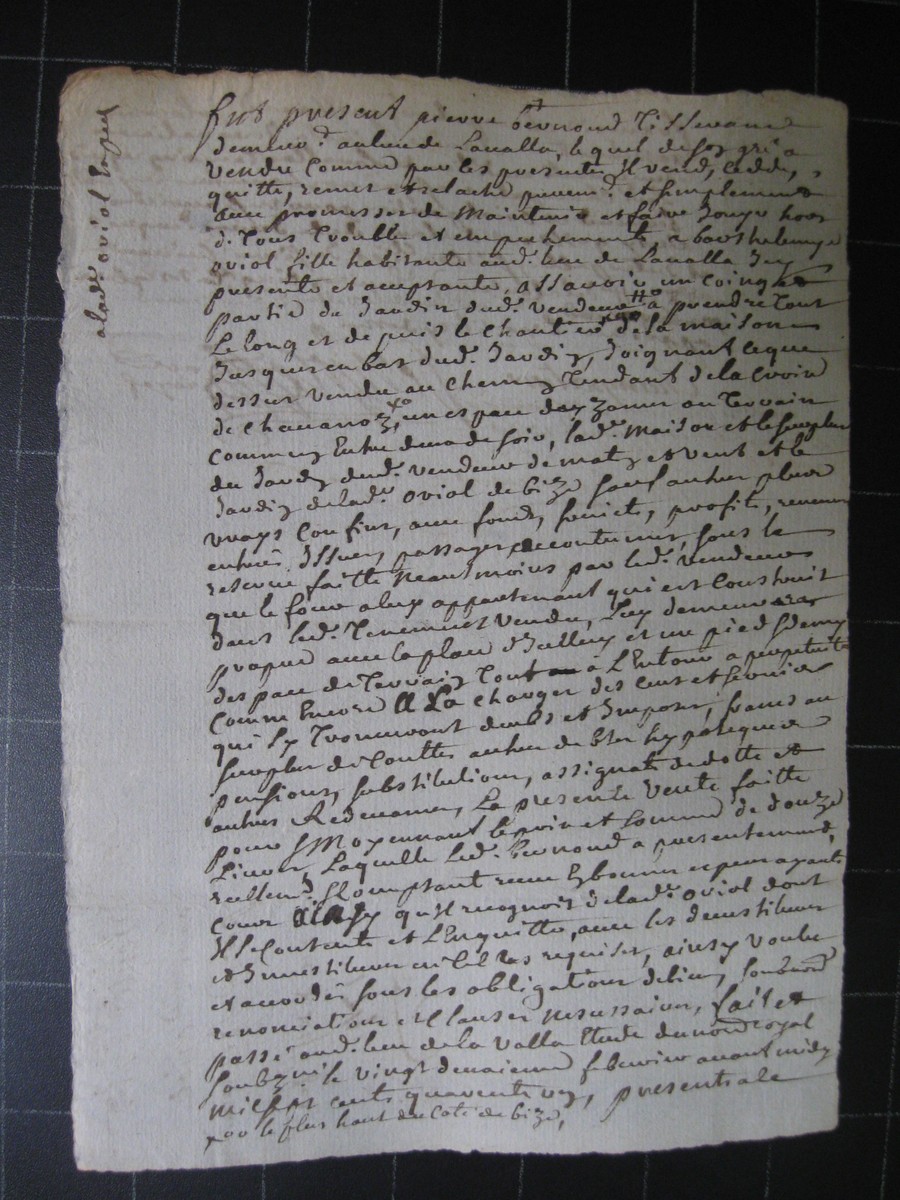 alad.e oriol
fut present pierre bernond Tisserand
demeur.t au lieu de Lavalla, lequel de son gré a
vendu comme par les presentes Il vend, cedde,
quitte, remet et relache purem.t et simplement
avec promesse de Maintenir et faire Jouyr hors
de Tous Trouble et empechements, a barthelemye
oriol fille habitante aud.t lieu de Lavalla Icy
presente et acceptante, assavoir un coing et
partie de Jardin dud.t vendeur a prendre Tout
Le long et depuis le de la maison
Jusques en bas dud.t Jardin, Joignant ce que
dessus vendu au chemin Tendant de la Croix
de un espace de Terrain
commun Entre deux de soir, lad.e Maison et le surplus
du Jardin dud.t vendeur de matin et vent et le
Jardin de lad.e oriol de bize sauf autres plus
vrays confins, avec fonds, fruicts, profits, revenus
entrées Issues, passages accoutumés, sous la
reserve faitte Neantmoins par led.t vendeur
que le four a luy appartenant qui est Construit
dans led.t Tenement vendu, Luy demeurera
propre avec la place d'Icelluy et un pied & demy
despace de Terrain Tout à L'Entour a perpetuité
comme Encore A La charger des cens et servis
qui sy Trouveront deubs et Imposés, francs au
surplus de Touttes autres debtes hypoteques
pensions, substitutions, assignats de dotte et
autres Redevances, La presente Vente faitte
pour & Moyennant le prix et somme de douze
Livres, Laquelle led.t bernond a presentement,
reellem.t & Comptant receu En bonnes especes ayants
cours ainsy qu'Il recognoit de lad.e oriol dont
Il se Contente et L'En quitte, avec les devestitures
et Investitures en tel cas requises, ainsy voulu
et accordé sous les obligations de biens,
renonciations et Clauses necessaires, fait et
passé aud.t lieu de la valla Etude du no.re royal
soubzigné le vingt deuxieme febvrier avant midy
mil sept cents quarente presents a le
xoo le plus haut du Coté de bize,